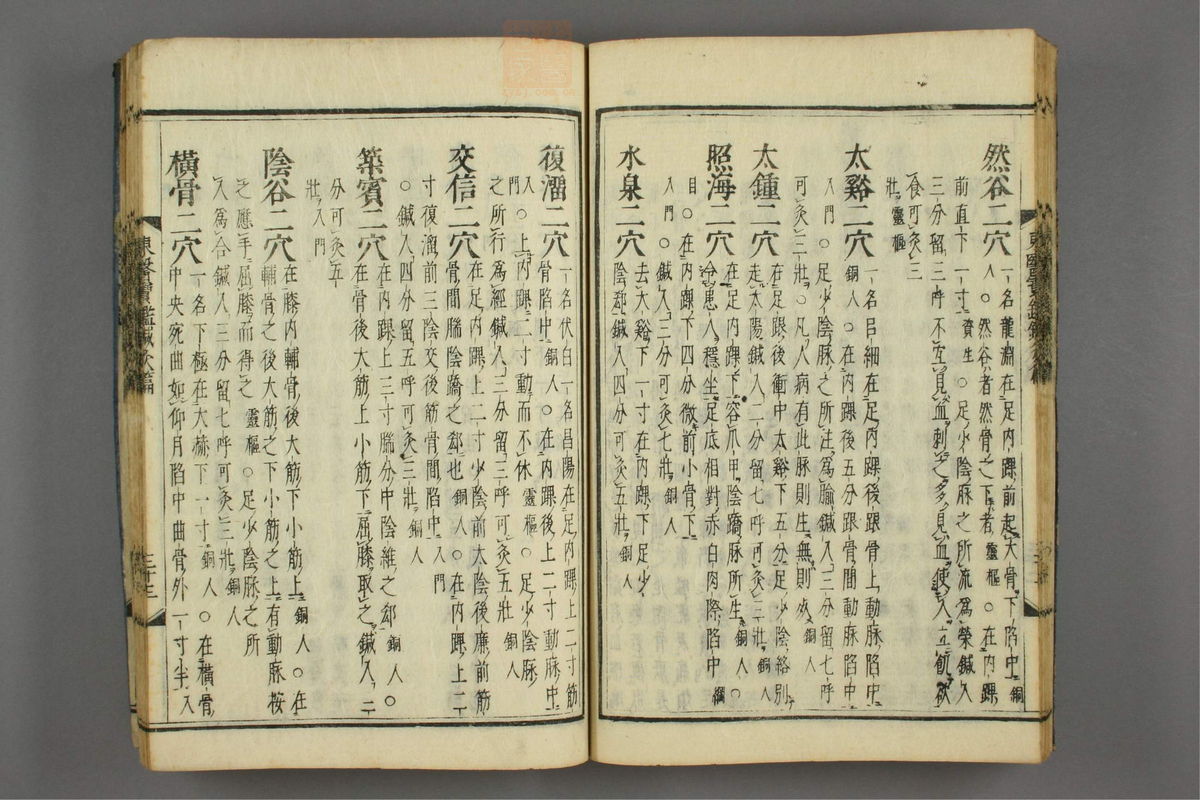 然谷二穴 一名龍淵在足内踝前起大骨下陷中銅
人○然谷者然骨之下者靈樞○在内踝
前直下一寸資生○足少陰脉之所流爲滎鍼入
三分留三呼不宜見血刺之多見血使人立飢欲
食可灸三
壯靈樞
太谿二穴 一名呂細在足内踝後跟骨上動脉陷中
銅人○在内踝後五分跟骨間動脉陷中
入門○足少陰脉之所注爲腧鍼入三分留七呼
可灸三壯○凡人病有此脉則生無則死銅人
太鍾二穴 在足跟後衝中太谿下五分足少陰絡別
走太陽鍼入二分留七呼可灸三壯銅人
照海二穴 在足内踝下容爪甲陰蹻脉所生銅人○
令患人穩坐足底相對赤白肉際陷中綱
目○在内踝下四分微前小骨下
入門○鍼入三分可灸七壯銅人
水泉二穴 去太谿下一寸在内踝下足少
陰郄鍼入四分可灸五壯銅人
復溜二穴 一名伏白一名昌陽在足内踝上二寸筋
骨陷中銅人○在内踝後上二寸動脉中
入門○上内踝二寸動而不休靈樞○足少陰脉
之所行爲經鍼入三分留三呼可灸五壯銅人
交信二穴 在足内踝上二寸少陰前太陰後廉前筋
骨間腨陰蹻之郄也銅人○在内踝上二
寸復溜前三陰交後筋骨間陷中入門
○鍼入四分留五呼可灸三壯銅人
築賓二穴 在内踝上三寸腨分中陰維之郄銅人○
在骨後大筋上小筋下屈膝取之鍼入二
分可灸五
壯入門
陰谷二穴 在膝内輔骨後大筋下小筋上銅人○在
輔骨之後大筋之下小筋之上有動脉按
之應手屈膝而得之靈樞○足少陰脉之所
入爲合鍼入三分留七呼可灸三壯銅人
橫骨二穴 一名下極在大赫下一寸銅人○在橫骨
中央宛曲如仰月陷中曲骨外一寸半入
東醫寶鑑鍼灸篇